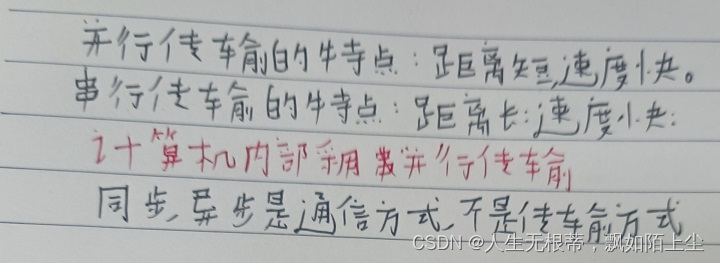 并行传输的特点：距离短,速度快。
串行传输的特点：距离长；速度快；
计算机内部采用并行传输
同步,异步是通信方式,不是传输方式
CSDN @人生无根蒂，飘如陌上尘